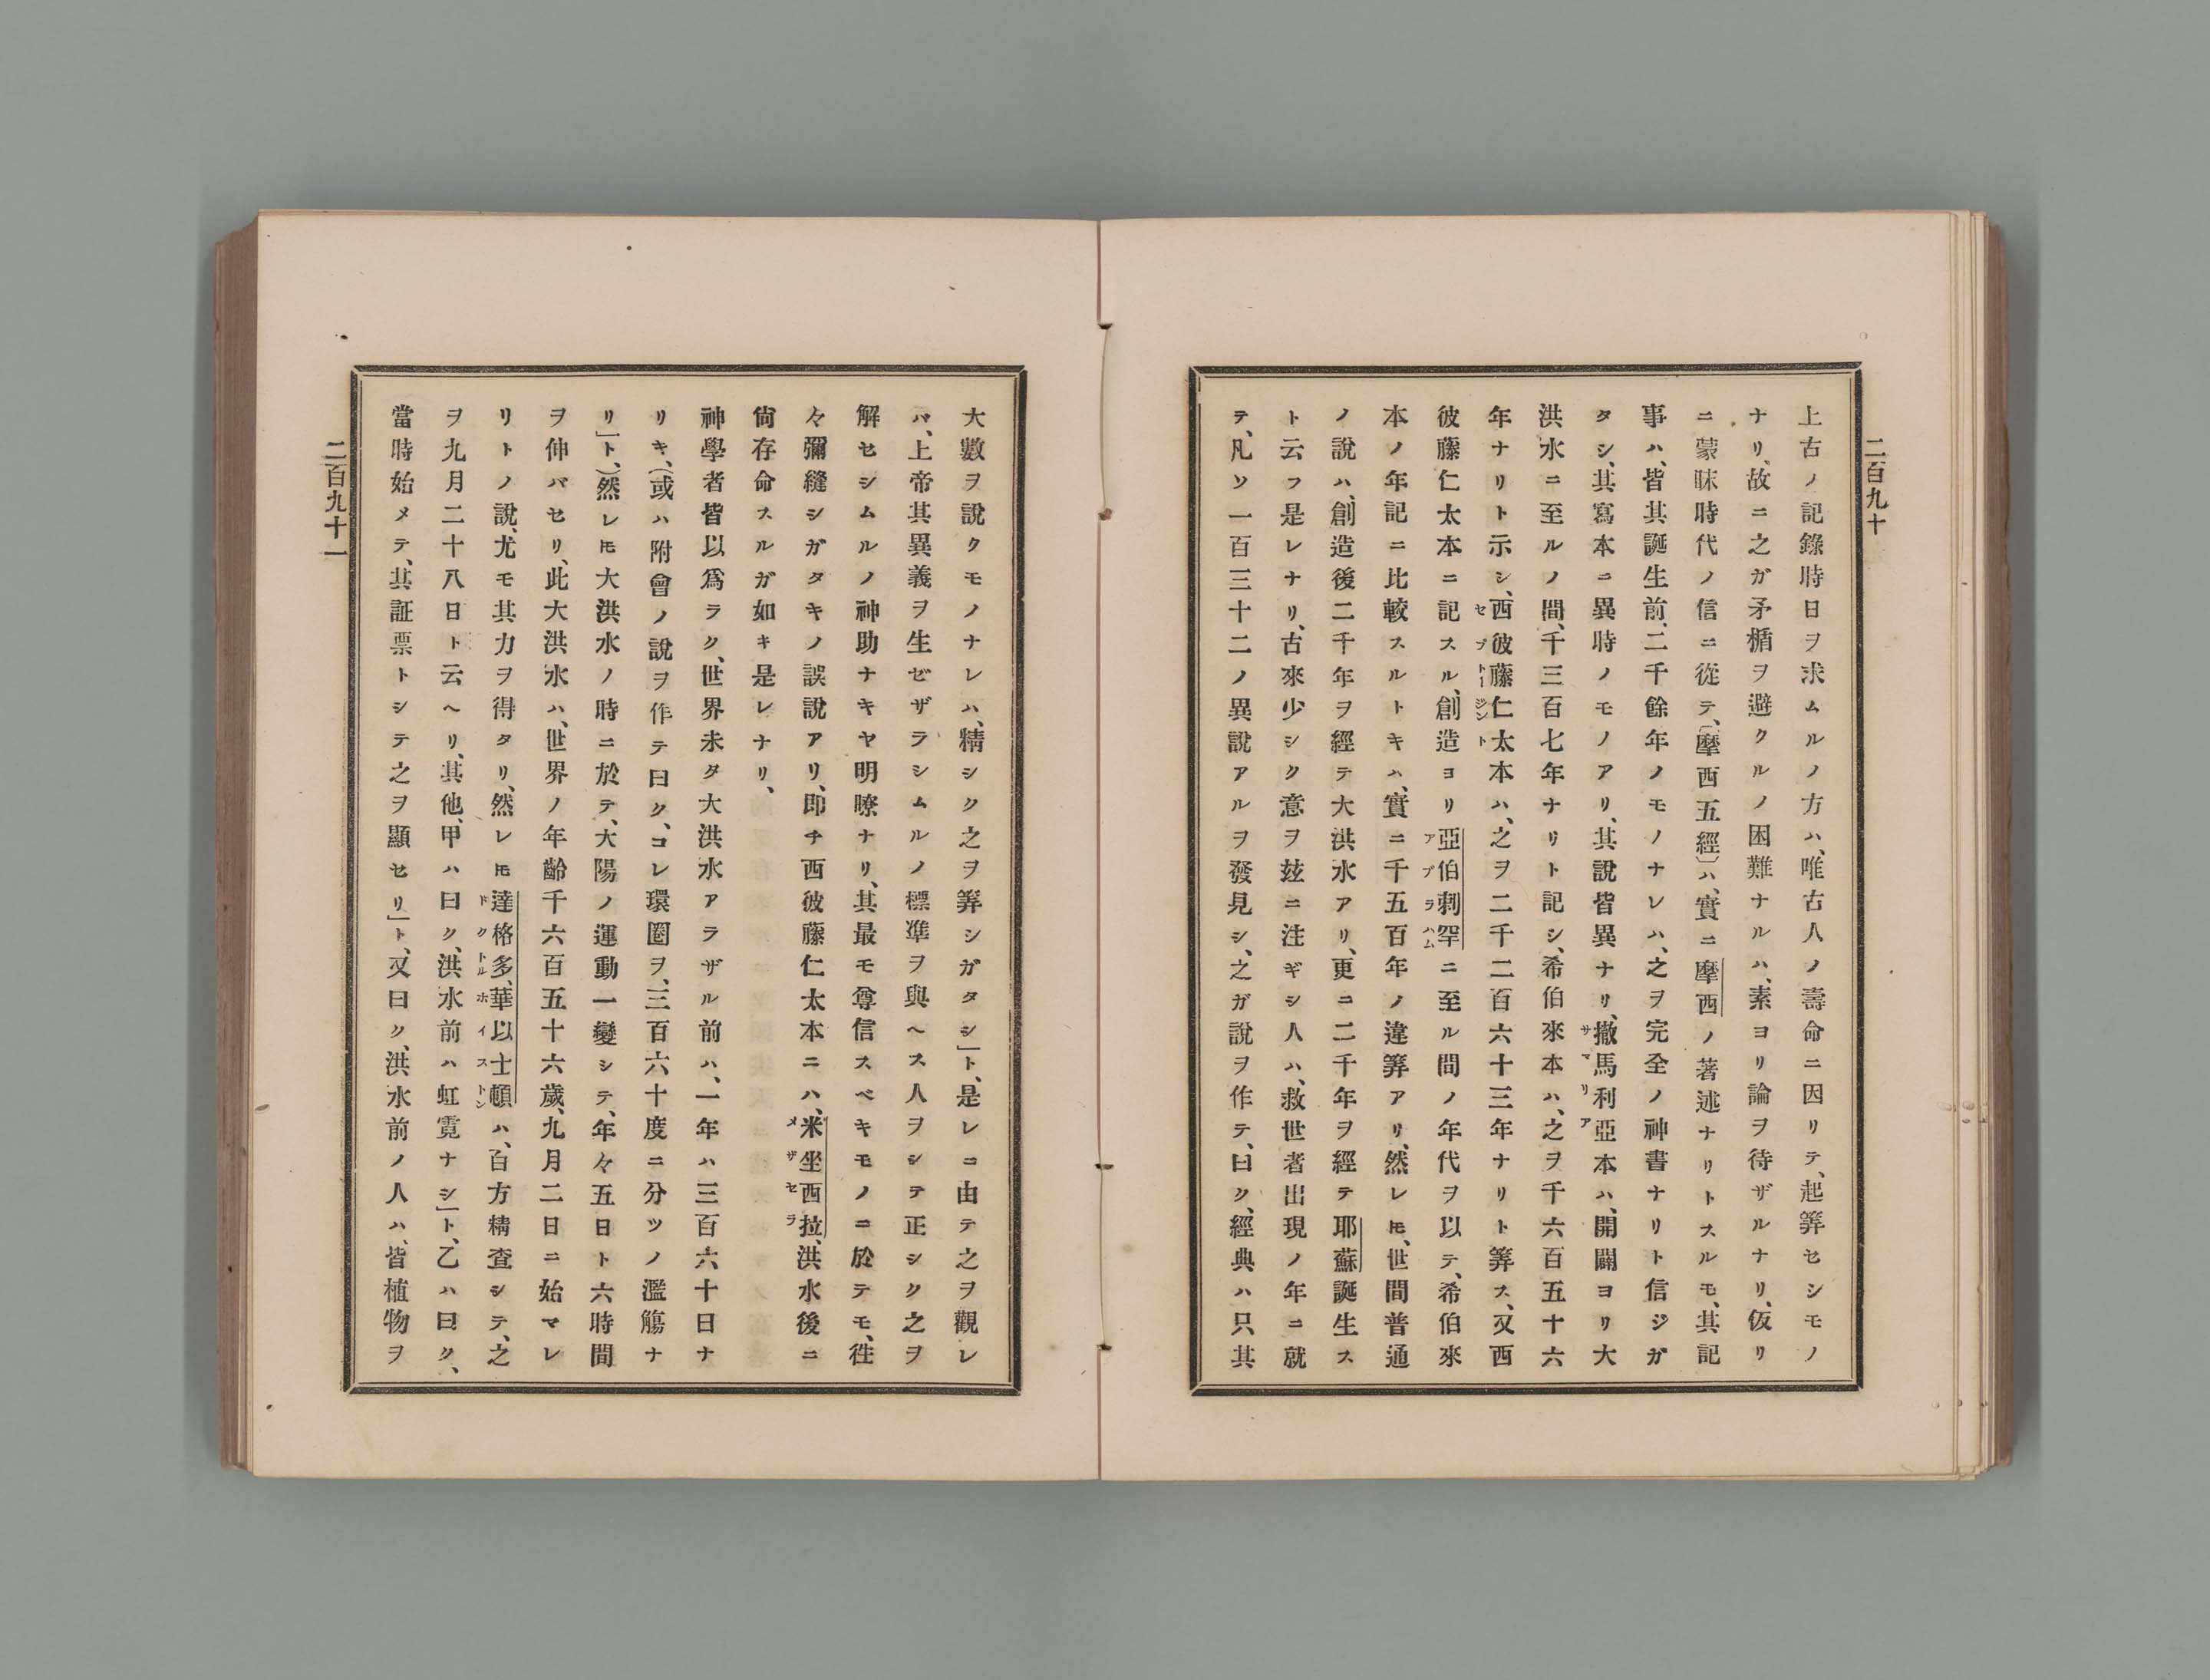 二百九十
上古ノ記錄時日ヲ求ムルノ方ハ、唯古人ノ壽命ニ因リテ、起筭セシモノ
ナリ、故ニ之ガ矛楯ヲ避クルノ困難ナルハ、素ヨリ論ヲ待ザルナリ、仮リ
ニ蒙昧時代ノ信ニ從テ、(摩西五經)ハ、實ニ摩西ノ著述ナリトスルモ、其記
事ハ、皆其誕生前、二千餘年ノモノナレハ、之ヲ完全ノ神書ナリト信ジガ
タシ、其寫本ニ異時ノモノアリ、其說皆異ナリ、撒馬利亞本ハ、開闢ヨリ大
サマリア
洪水ニ至ルノ間、千三百七年ナリト記シ、希伯來本ハ、之ヲ千六百五十六
年ナリト示シ、西彼藤仁太本ハ、之ヲ二千二百六十三年ナリト筭ス、又西
セプトージント
彼藤仁太本ニ記スル、創造ヨリ亞伯剌罕ニ至ル間ノ年代ヲ以テ、希伯來
アブラハム
本ノ年記ニ比較スルトキハ、實ニ千五百年ノ違筭アリ、然レ𪜈、世間普通
ノ說ハ、創造後二千年ヲ經テ大洪水アリ、更ニ二千年ヲ經テ耶蘇誕生ス
ト云フ是レナリ、古來少シク意ヲ玆ニ注ギシ人ハ、救世者出現ノ年ニ就
テ、凡ソ一百三十二ノ異說アルヲ發見シ、之ガ說ヲ作テ、曰ク、經典ハ只其
大數ヲ說クモノナレハ、精シク之ヲ筭シガタシ」ト、是レニ由テ之ヲ觀レ
バ、上帝其異義ヲ生ゼザラシムルノ標準ヲ與ヘス人ヲシテ正シク之ヲ
解セシムルノ神助ナキヤ明瞭ナリ、其最モ尊信スベキモノニ於テモ、徃
々彌縫シガタキノ誤說アリ、即チ西彼藤仁太本ニハ、米坐西拉、洪水後ニ
メザセラ
尙存命スルガ如キ是レナリ、
神學者皆以爲ラク、世界未タ大洪水アラザル前ハ、一年ハ三百六十日ナ
リキ、(或ハ附會ノ說ヲ作テ曰ク、コレ環圈ヲ、三百六十度ニ分ツノ濫觴ナ
リ」ト、)然レ𪜈大洪水ノ時ニ於テ、大陽ノ運動一變シテ、年々五日ト六時間
ヲ伸バセリ、此大洪水ハ、世界ノ年齡千六百五十六歲、九月二日ニ始マレ
リトノ說、尤モ其力ヲ得タリ、然レ𪜈達格多、華以士頓ハ、百方精査シテ、之
ドクトルホイストン
ヲ九月二十八日ト云ヘリ、其他、甲ハ曰ク、洪水前ハ虹霓ナシ」ト、乙ハ曰ク、
當時始メテ、其証票トシテ之ヲ顯セリ」ト、又曰ク、洪水前ノ人ハ、皆植物ヲ
二百九十一